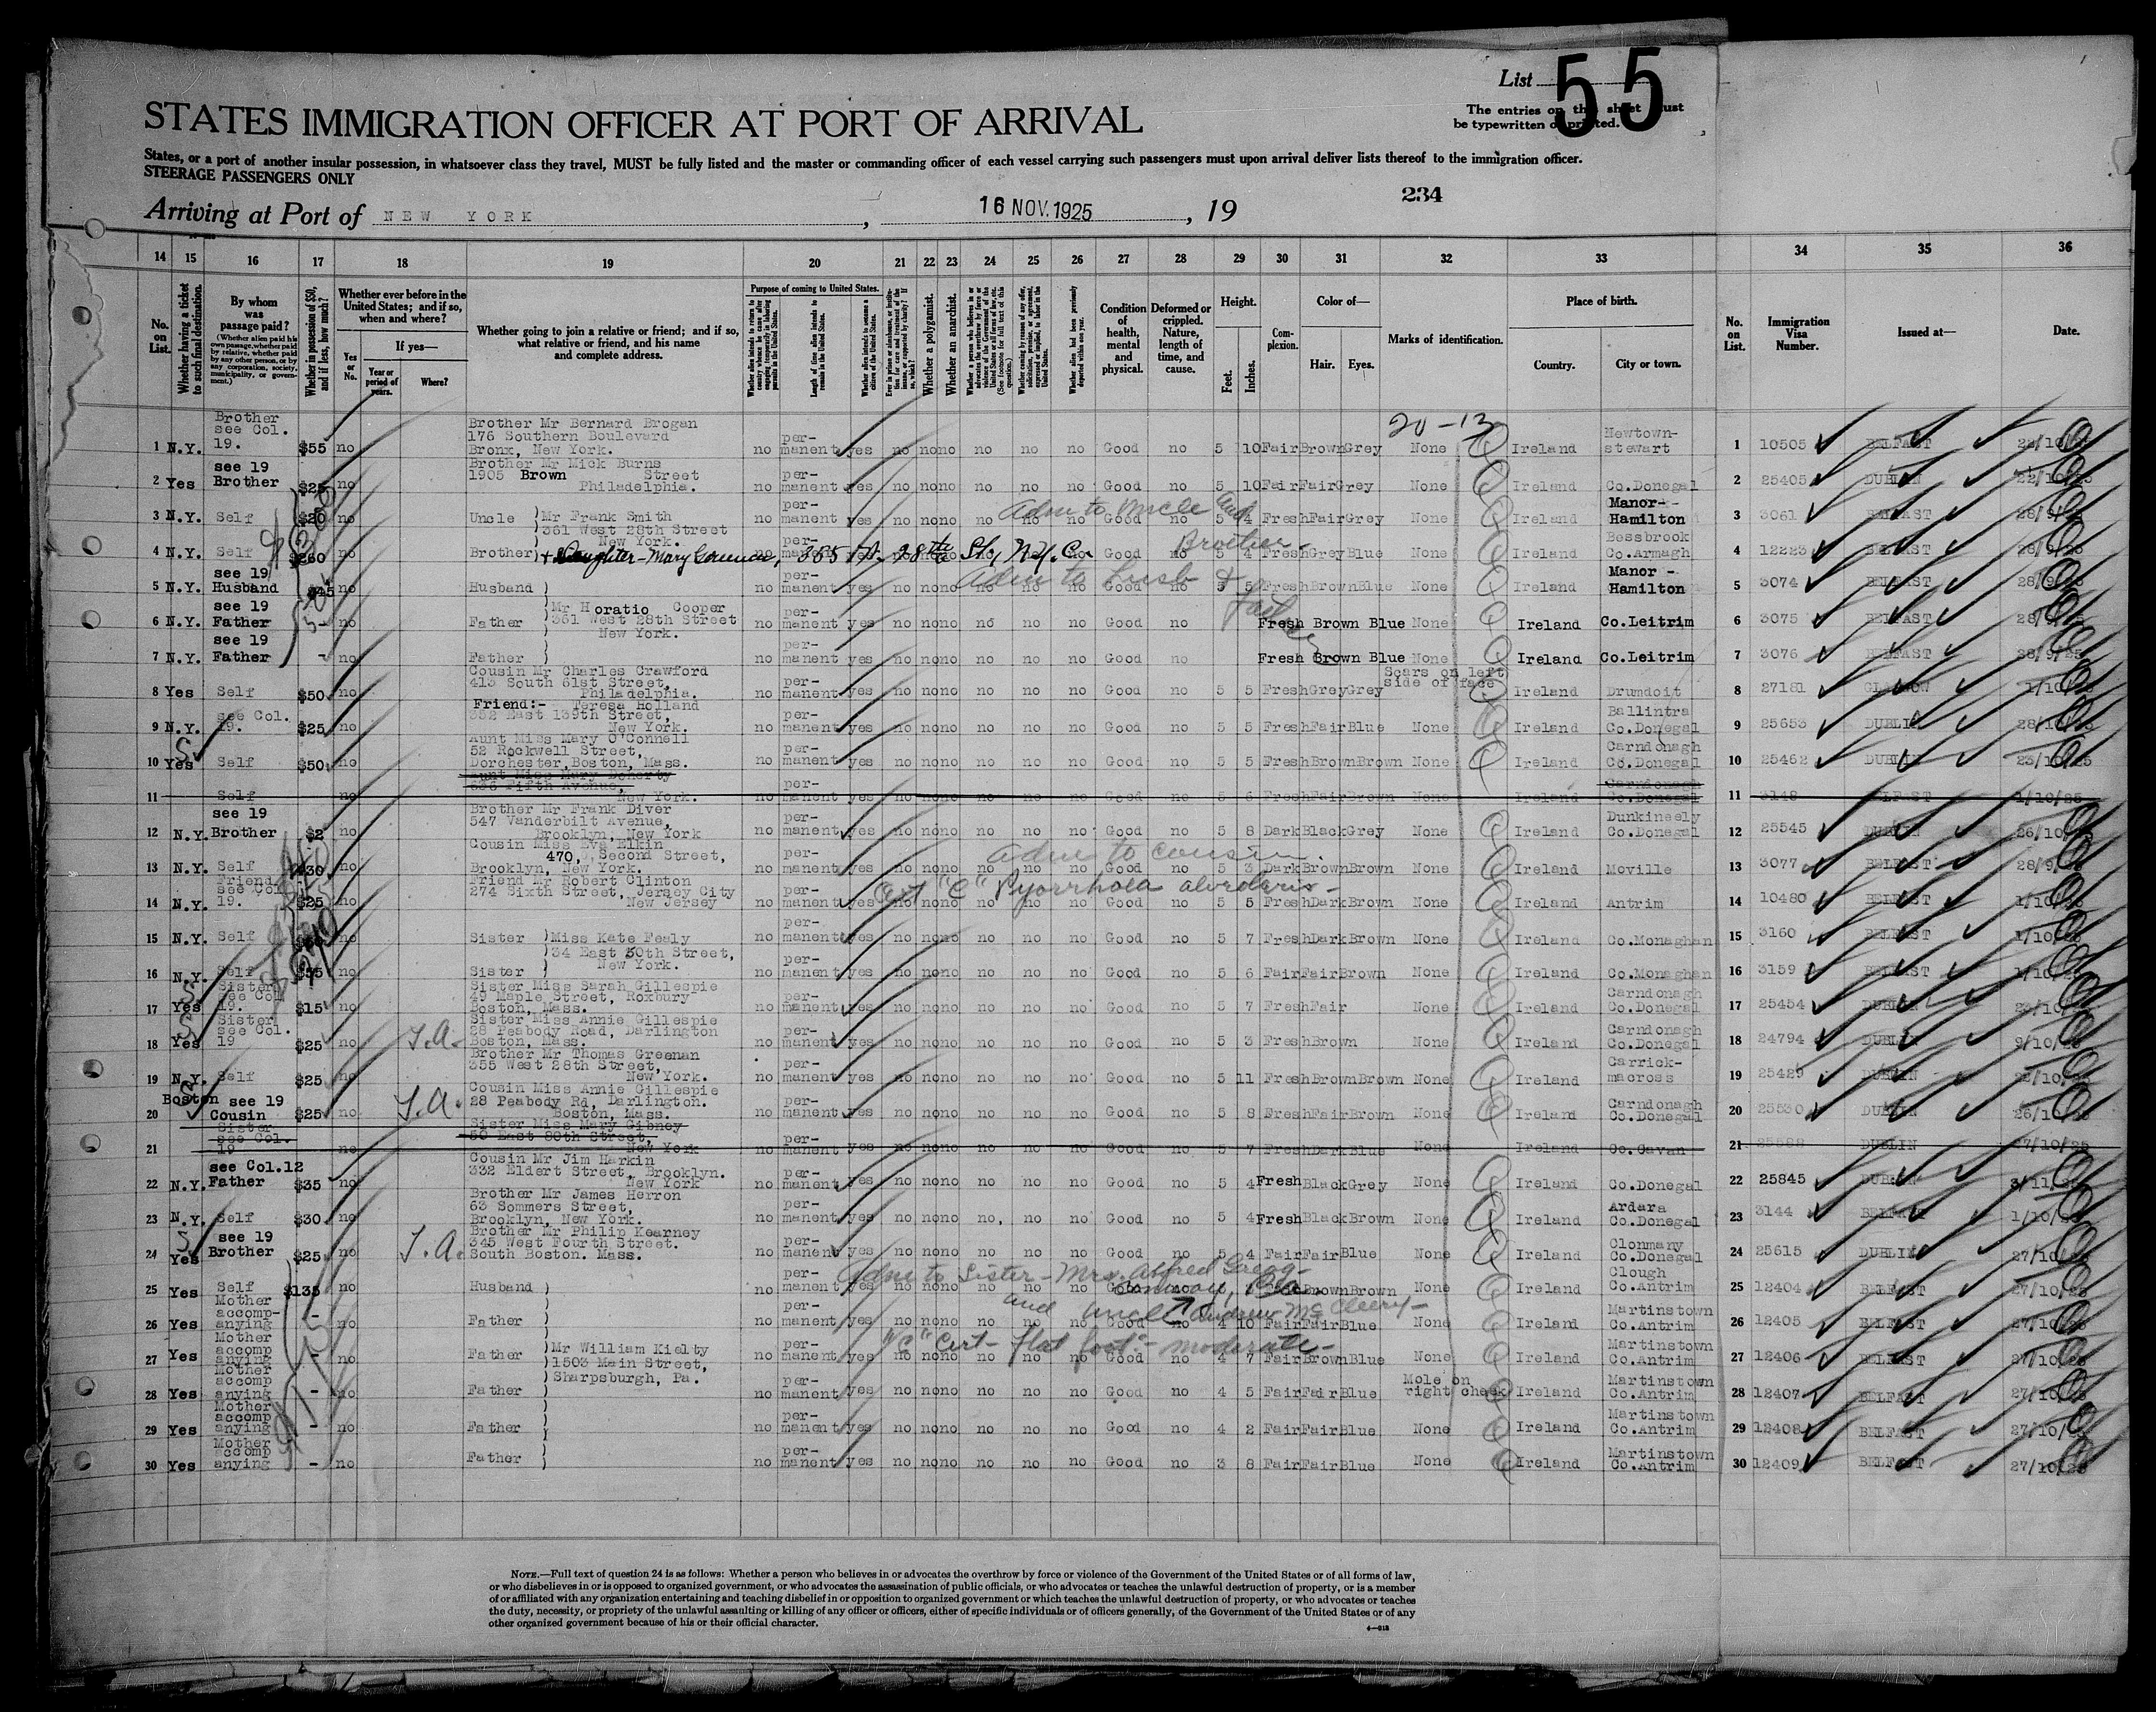 List 55
The entries on this sheet must
be typewritten or printed.
STATES IMMIGRATION OFFICER AT PORT OF ARRIVAL
States, or a port of another insular possession, in whatsoever class they travel, MUST be fully listed and the master or commanding officer of each vessel carrying such passengers must upon arrival deliver lists thereof to the immigration officer.
STEERAGE PASSENGERS ONLY
234
Arriving at Port of NEW YORK, 16 NOV. 1925, 19
14 15 16 17 18 19 20 21 22 23 24 25 26 27 28 29 30 31 32 33 34 35 36
No. on List.
Whether having a ticket to such final destination.
By whom was passage paid?
(Whether alien paid his own passage, whether paid by relative, whether paid by any other person, or by any corporation, society, municipality, or government.)
Whether in possession of $50, and if less, how much?
Whether ever before in the United States; and if so, when and where?
Yes or No.
If yes—
Year or period of years.
Where?
Whether going to join a relative or friend; and if so, what relative or friend, and his name and complete address.
Purpose of coming to United States.
Length of time alien intends to remain in the United States.
Whether a polygamist.
Whether an anarchist.
Condition of health, mental and physical.
Deformed or crippled. Nature, length of time, and cause.
Height.
Feet. Inches.
Complexion.
Color of—
Hair. Eyes.
Marks of identification.
Place of birth.
Country. City or town.
No. on List.
Immigration Visa Number.
Issued at—
Date.
20-13
1 N.Y. Brother see Col. 19. $55 no Brother Mr Bernard Brogan 176 Southern Boulevard Bronx, New York. no permanent yes no no no no no no Good no 5 10 Fair Brown Grey None Ireland Newtown-stewart 1 10505 BELFAST
2 Yes see 19 Brother $25 no Brother Mr Mick Burns 1905 Brown Street Philadelphia. no permanent yes no no no no no no Good no 5 10 Fair Fair Grey None Ireland Co.Donegal 2 25405 DUBLIN
3 N.Y. Self $20 no Uncle Mr Frank Smith 361 West 28th Street New York. no permanent yes no no no no no no Good no 5 4 Fresh Fair Grey None Ireland Manor-Hamilton 3 3061 BELFAST
Adm to Uncle and Brother -
4 N.Y. Self $260 no Brother + Daughter - Mary Gorman, 355 W. 28th St., N.Y. Co. Good no 5 4 Fresh Grey Blue None Ireland Bessbrook Co.Armagh 4 12223 BELFAST
5 N.Y. see 19 Husband $45 no Husband no permanent yes no no no no no no Good no 5 5 Fresh Brown Blue None Ireland Manor-Hamilton 5 3074 BELFAST 28/9/25
Adm to Husb & Father
6 N.Y. see 19 Father - no Father Mr Horatio Cooper 361 West 28th Street New York. no permanent yes no no no no no no Good no Fresh Brown Blue None Ireland Co.Leitrim 6 3075 BELFAST 28/9/25
7 N.Y. see 19 Father - no Father no permanent yes no no no no no no Good no Fresh Brown Blue None Ireland Co.Leitrim 7 3076 BELFAST 28/9/25
8 Yes Self $50 no Cousin Mr Charles Crawford 413 South 61st Street, Philadelphia. no permanent yes no no no no no no Good no 5 5 Fresh Grey Grey Scars on left side of face Ireland Drumdoit 8 27181 GLASGOW 1/10/25
9 N.Y. see Col. 19. $25 no Friend:- Teresa Holland 352 East 139th Street, New York. no permanent yes no no no no no no Good no 5 5 Fresh Fair Blue None Ireland Ballintra Co.Donegal 9 25653 DUBLIN 28/10/25
10 Yes Self $50 no Aunt Miss Mary O'Connell 52 Rockwell Street, Dorchester, Boston, Mass. no permanent yes no no no no no no Good no 5 5 Fresh Brown Brown None Ireland Carndonagh Co.Donegal 10 25462 DUBLIN 23/10/25
11 Self no Aunt Miss Mary Doherty 636 Fifth Avenue, New York. no permanent yes no no no no no no Good no 5 6 Fresh Fair Brown None Ireland Carndonagh Co.Donegal 11 3148 BELFAST 1/10/25
12 N.Y. see 19 Brother $2 no Brother Mr Frank Diver 547 Vanderbilt Avenue, Brooklyn, New York no permanent yes no no no no no no Good no 5 8 Dark Black Grey None Ireland Dunkineely Co.Donegal 12 25545 DUBLIN 26/10/25
13 N.Y. Self $30 no Cousin Miss Eva Elkin 470, Second Street, Brooklyn, New York. no permanent yes no no no no no no Good no 5 3 Dark Brown Brown None Ireland Moville 13 3077 BELFAST 28/9/25
Adm to cousin.
14 N.Y. Friend see Col 19. $25 no Friend Mr Robert Clinton 274 Sixth Street, Jersey City New Jersey no permanent yes no no no no no no Good no 5 5 Fresh Dark Brown None Ireland Antrim 14 10480 BELFAST 1/10/25
Cert "C" Pyorrhoea alveolaris -
15 N.Y. Self no Sister Miss Kate Fealy 34 East 30th Street, New York. no permanent yes no no no no no no Good no 5 7 Fresh Dark Brown None Ireland Co.Monaghan 15 3160 BELFAST 1/10/25
16 N.Y. Self $55 no Sister no permanent yes no no no no no no Good no 5 6 Fair Fair Brown None Ireland Co.Monaghan 16 3159 BELFAST 1/10/25
17 Yes Sister see Col 19. $15 no Sister Miss Sarah Gillespie 49 Maple Street, Roxbury Boston, Mass. no permanent yes no no no no no no Good no 5 7 Fresh Fair None Ireland Carndonagh Co.Donegal 17 25454 DUBLIN
18 Yes Sister see Col. 19 $25 no T.A. Sister Miss Annie Gillespie 28 Peabody Road, Darlington Boston, Mass. no permanent yes no no no no no no Good no 5 3 Fresh Brown None Ireland Carndonagh Co.Donegal 18 24794 DUBLIN 9/10/25
19 N.Y. Self $25 no Brother Mr Thomas Greenan 355 West 28th Street, New York. no permanent yes no no no no no no Good no 5 11 Fresh Brown Brown None Ireland Carrick-macross 19 25429 DUBLIN
20 Boston see 19 Cousin $25 no T.A. Cousin Miss Annie Gillespie 28 Peabody Rd, Darlington. Boston, Mass. no permanent yes no no no no no no Good no 5 8 Fresh Fair Brown None Ireland Carndonagh Co.Donegal 20 25530 DUBLIN 26/10/25
21 Sister see Col. 19 no Sister Miss Mary Gibney 50 East 80th Street, New York no permanent yes no no no no no no Good no 5 7 Fresh Dark Blue None Ireland Co.Cavan 21 DUBLIN 27/10/25
22 N.Y. see Col.12 Father $35 no Cousin Mr Jim Harkin 332 Eldert Street, Brooklyn. New York no permanent yes no no no no no no Good no 5 4 Fresh Black Grey None Ireland Co.Donegal 22 25845 DUBLIN 3/11/25
23 N.Y. Self $30 no Brother Mr James Herron 63 Sommers Street, Brooklyn, New York. no permanent yes no no no no no no Good no 5 4 Fresh Black Brown None Ireland Ardara Co.Donegal 23 3144 BELFAST 1/10/25
24 Yes see 19 Brother $25 no T.A. Brother Mr Philip Kearney 345 West Fourth Street. South Boston. Mass. no permanent yes no no no no no no Good no 5 4 Fair Fair Blue None Ireland Clonmany Co.Donegal 24 25615 DUBLIN 27/10/25
Adm to Sister - Mrs. Alfred Gregg -
25 Yes Self $135 no Husband no permanent yes no no no no no no Brown Brown None Ireland Clough Co.Antrim 25 12404 BELFAST 27/10/25
and uncle Andrew McCleery -
26 Yes Mother accompanying - no Father no permanent yes no no no no no no Good no 4 10 Fair Fair Blue None Ireland Martinstown Co.Antrim 26 12405 BELFAST 27/10/25
"C" Cert - flat foot - moderate -
27 Yes Mother accomp anying - no Father Mr William Kielty 1503 Main Street, Sharpsburgh, Pa. no permanent yes no no no no no no Good no 4 7 Fair Brown Blue None Ireland Martinstown Co.Antrim 27 12406 BELFAST 27/10/25
28 Yes Mother accomp anying - no Father no permanent yes no no no no no no Good no 4 5 Fair Fair Blue Mole on right cheek Ireland Martinstown Co.Antrim 28 12407 BELFAST 27/10/25
29 Yes Mother accomp anying - no Father no permanent yes no no no no no no Good no 4 2 Fair Fair Blue None Ireland Martinstown Co.Antrim 29 12408 BELFAST 27/10/25
30 Yes Mother accomp anying - no Father no permanent yes no no no no no no Good no 3 8 Fair Fair Blue None Ireland Martinstown Co.Antrim 30 12409 BELFAST 27/10/25
NOTE.—Full text of question 24 is as follows: Whether a person who believes in or advocates the overthrow by force or violence of the Government of the United States or of all forms of law,
or who disbelieves in or is opposed to organized government, or who advocates the assassination of public officials, or who advocates or teaches the unlawful destruction of property, or is a member
of or affiliated with any organization entertaining and teaching disbelief in or opposition to organized government or which teaches the unlawful destruction of property, or who advocates or teaches
the duty, necessity, or propriety of the unlawful assaulting or killing of any officer or officers, either of specific individuals or of officers generally, of the Government of the United States or of any
other organized government because of his or their official character.